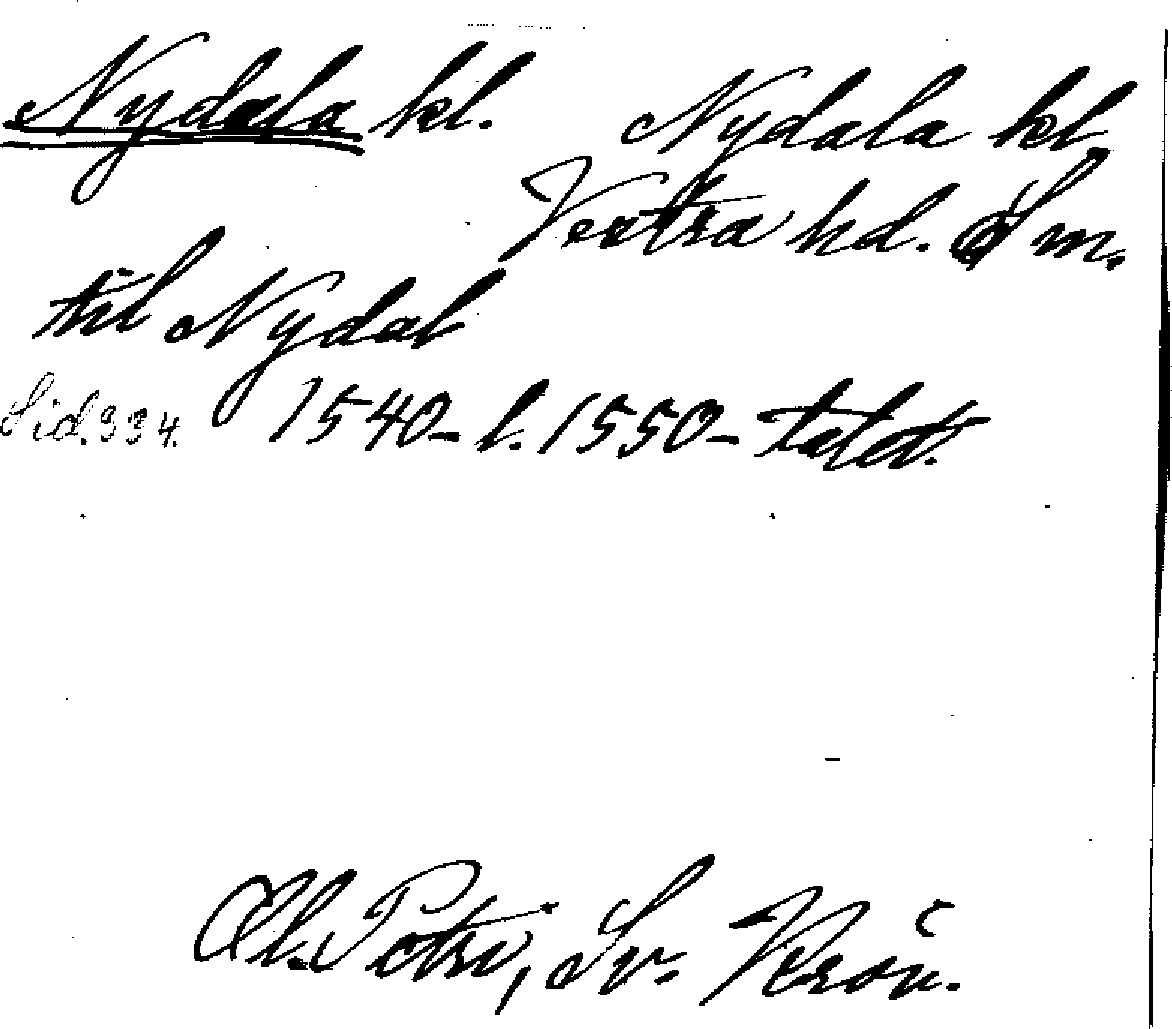 Nydala kl. Nydala kl,
Vestra hd. Sm.
til Nydal
Sid. 334. 1540- l. 1550-talet.
Ol. Petri, Sv. Krön.